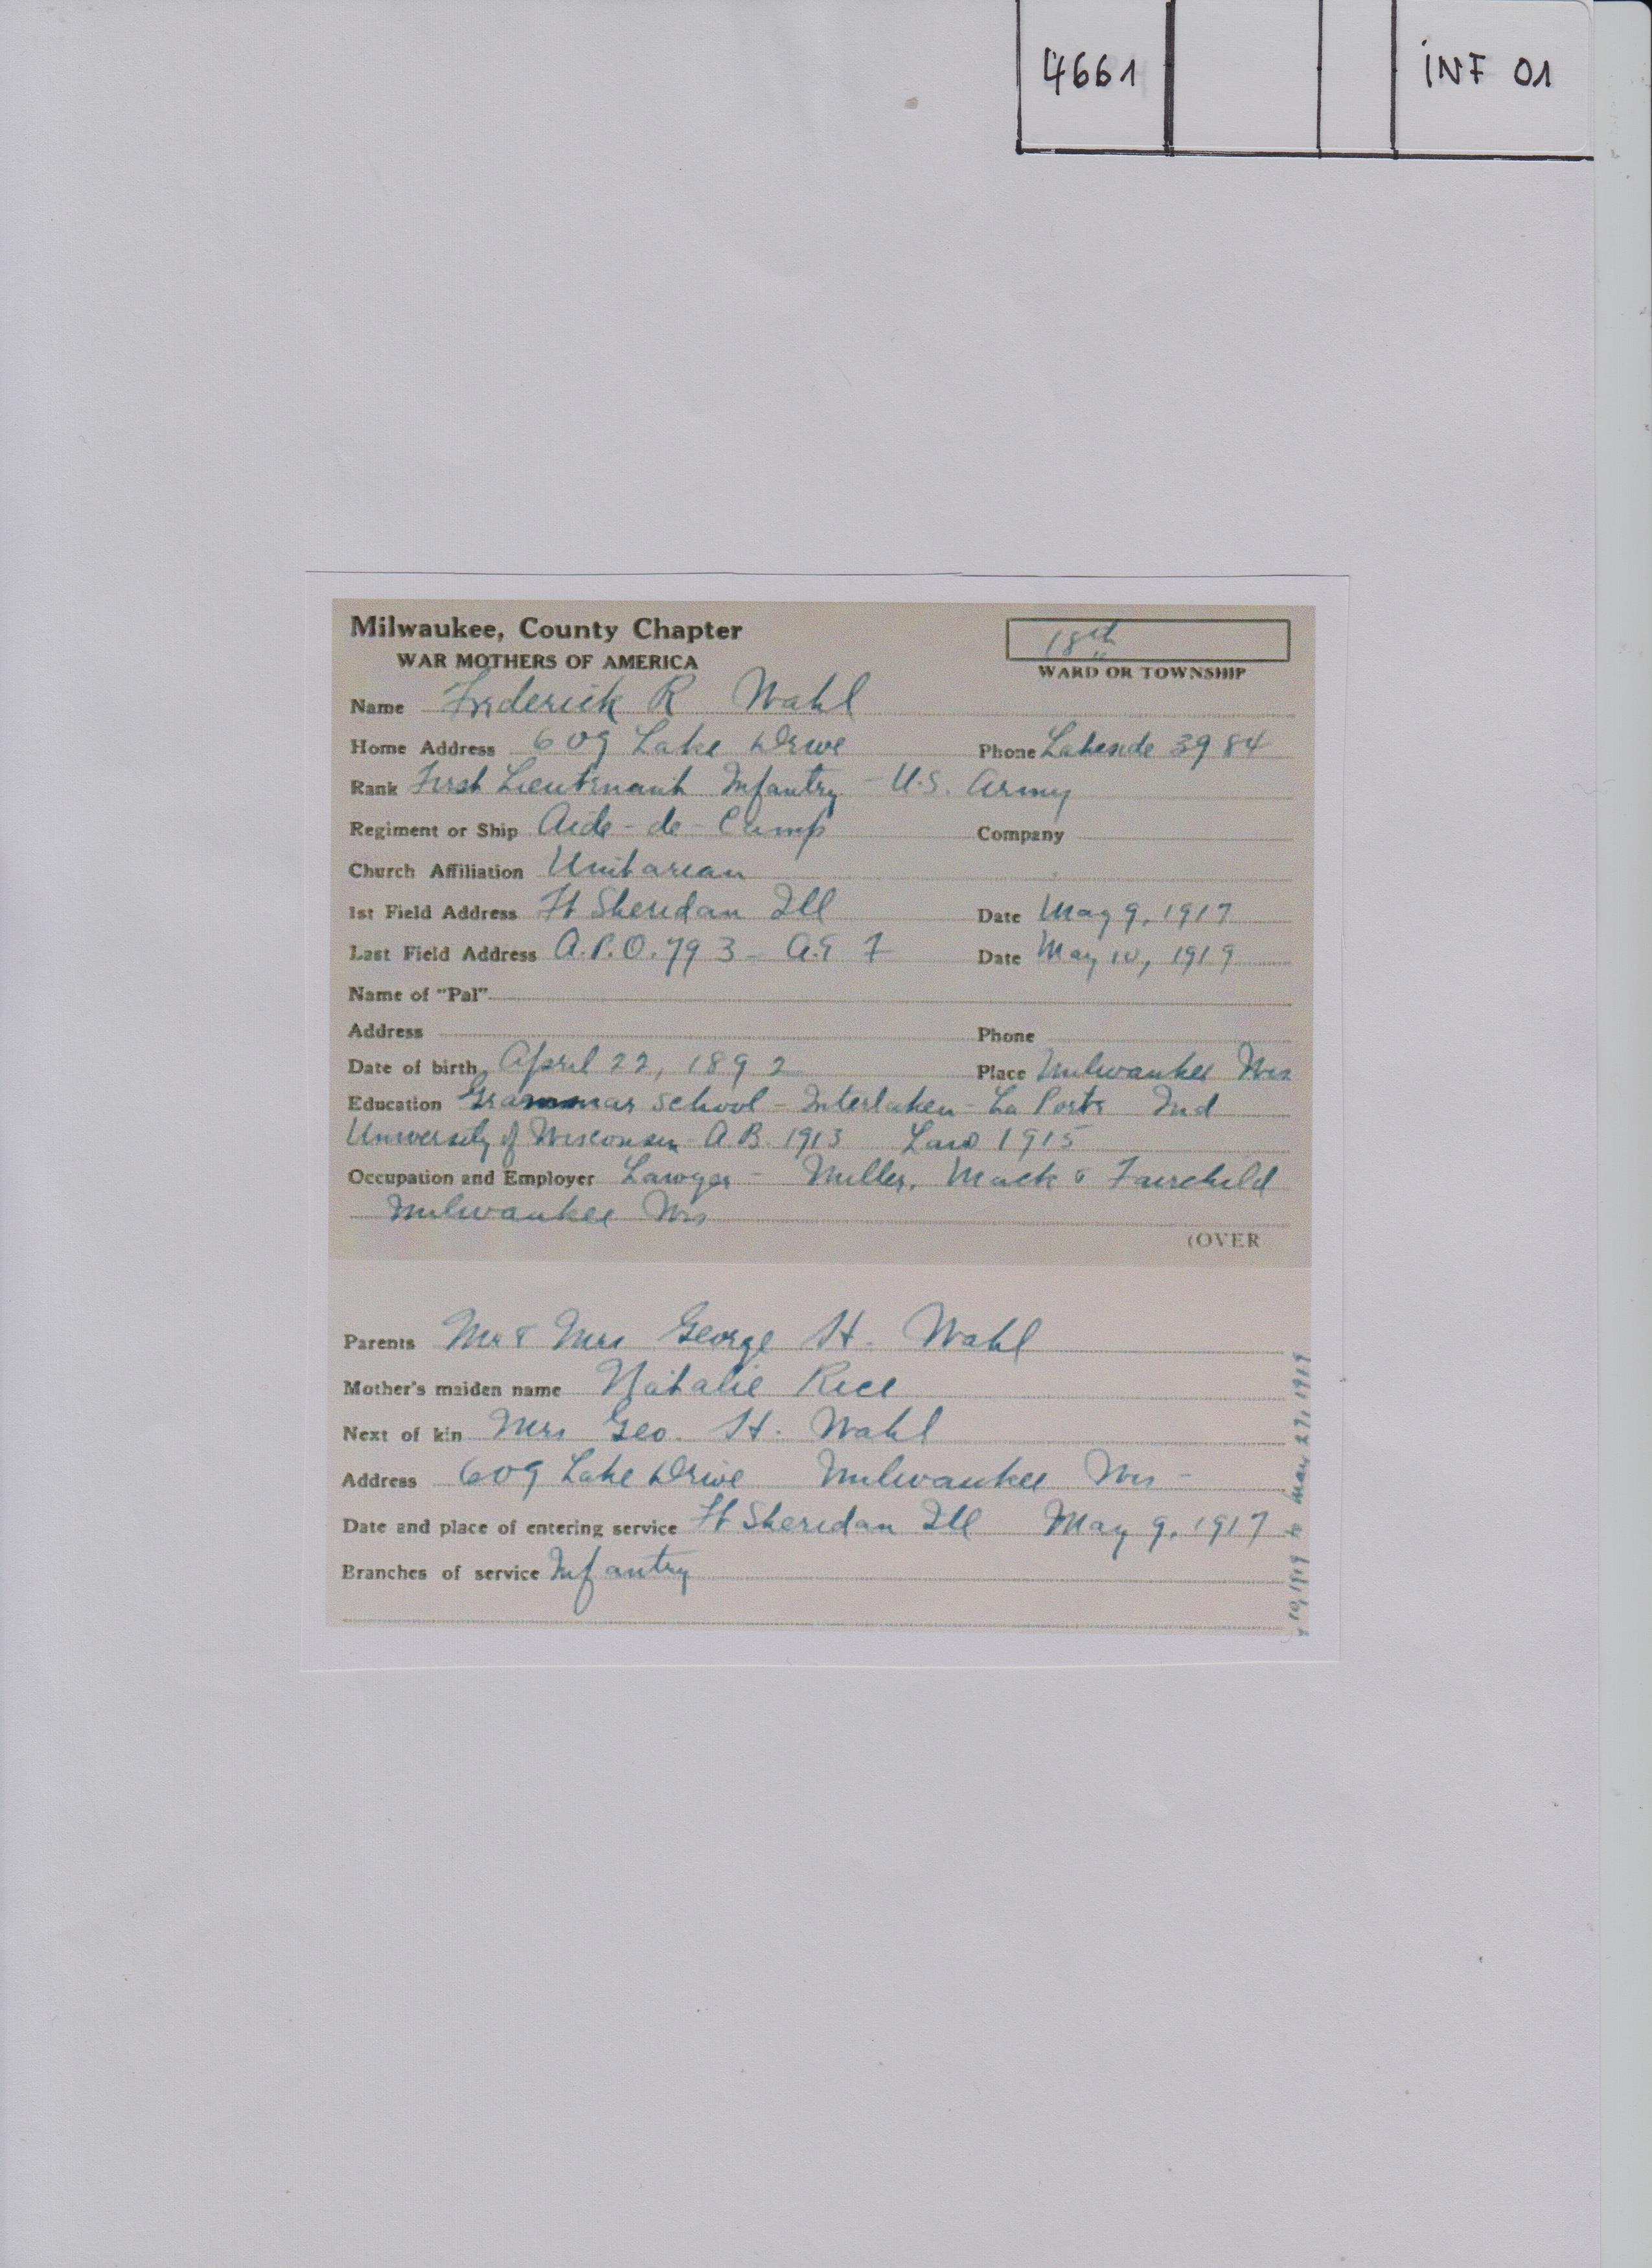 4661 INF 01
Milwaukee, County Chapter
WAR MOTHERS OF AMERICA
18th
WARD OR TOWNSHIP
Name Frederick R Wahl
Home Address 609 Lake Drive Phone Lakeside 3984
Rank First Lieutenant Infantry - U.S. Army
Regiment or Ship Aide-de-Camp Company
Church Affiliation Unitarian
1st Field Address Ft Sheridan Ill Date May 9, 1917
Last Field Address A.P.O. 793 - Date May 10, 1919
Name of "Pal"
Address Phone
Date of birth April 22, 1892 Place Milwaukee Wis
Education Grammar School - Interlaken - La Porte Ind
University of Wisconsin A.B. 1913 Law 1915
Occupation and Employer Lawyer - Miller, Mack & Fairchild
Milwaukee Wis
(OVER
Parents Mr & Mrs George H. Wahl
Mother's maiden name Natalie Rice
Next of kin Mrs Geo. H. Wahl
Address 609 Lake Drive Milwaukee Wis -
Date and place of entering service Ft Sheridan Ill May 9, 1917
Branches of service Infantry
10, 1919 to May 27, 1919